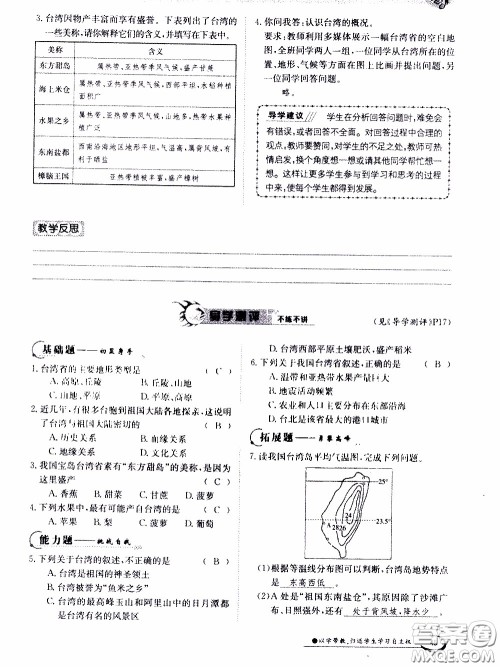 3. 台湾因物产丰富而享有盛誉。下表列出了台湾的
一些美称,请你解释它们的含义,并填入表中。
美称 含义
东方甜岛 属热带、亚热带季风气候,盛产甘蔗
海上米仓 属热带、亚热带季风气候,西部地形平坦,水稻种植
面积广
水果之乡 属热带、亚热带季风气候,山地多,热带、亚热带水果种
植广泛
东南盐都 西南沿海地区地形平坦,气温高,属背风坡,有
利于晒盐
樟脑王国 亚热带植被丰富,盛产樟树
4. 你问我答:认识台湾的概况。
要求:教师利用多媒体展示一幅台湾省的空白地
图,全班同学两人一组,一位同学从台湾的所在、
地形、气候等方面在图上比画并提出问题,另一
位同学回答问题。
略。
导学建议 学生在分析回答问题时,难免会
有错误,或者回答不全面。对回答过程中合理的
观点,教师要赞同,对学生的不足之处,教师可热
情启发,换个角度想一想或请其他同学帮忙想一
想。让更多学生参与到学习和思考的过程
中来,使每个学生都得到发展。
教学反思
导学测评 不练不讲
(见《导学测评》P17)
基础题——初显身手
1. 台湾省的主要地形类型是 ( C )
A. 高原、丘陵 B. 丘陵、山地
C. 山地、丘陵 D. 平原、山地
2. 近几年,有很多台湾同胞到祖国大陆各地探亲,这说明
台湾与祖国大陆密切的 ( B )
A. 历史关系 B. 血缘关系
C. 文化关系 D. 经济关系
3. 我国宝岛台湾省素有“东方甜岛”的美称,是因为
这里盛产 ( B )
A. 香蕉 B. 甘蔗 C. 甜菜 D. 菠萝
4. 下列水果中,最有可能产自台湾的是 ( C )
A. 苹果 B. 梨 C. 菠萝 D. 葡萄
能力题——挑战自我
5. 下列关于台湾的叙述,不正确的是 ( B )
A. 台湾是祖国的神圣领土
B. 台湾被誉为“鱼米之乡”
C. 台湾的最高峰玉山和阿里山中的日月潭都
是台湾的名胜
D. 台湾西部平原土壤肥沃,盛产稻米
6. 下列关于我国台湾省叙述,正确的是 ( B )
A. 温带和亚热带水果产量巨大
B. 地震活动频繁
C. 农业和人口主要分布在东部沿海
D. 台北是台湾最大的港口城市
拓展题——勇攀高峰
7. 读我国台湾岛年平均气温图,完成下列问题。
25°
24
A 28 26
23.5°
(1)根据等温线分布图可以判断,台湾岛地势特点
是 东高西低 。
(2)A处是“祖国东南盐仓”,其东侧是沙滩
广布。另外还有 处于背风坡,降水少 。
以学带教,归还学生学习自主权